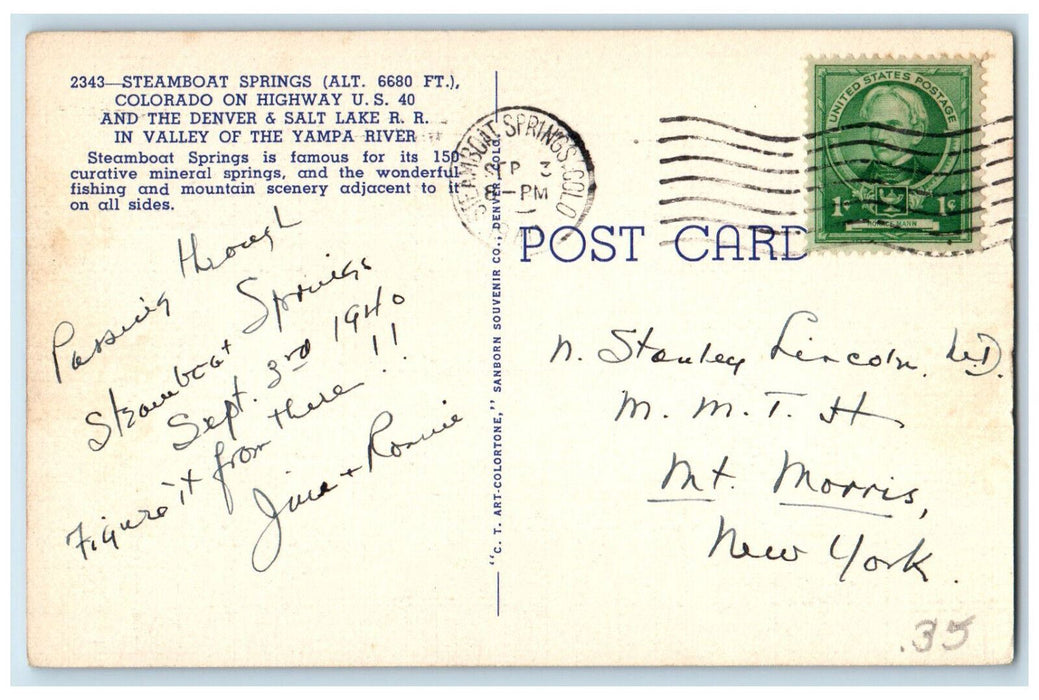 2343—STEAMBOAT SPRINGS (ALT. 6680 FT.),
COLORADO ON HIGHWAY U.S. 40
AND THE DENVER & SALT LAKE R. R.
IN VALLEY OF THE YAMPA RIVER
Steamboat Springs is famous for its 150
curative mineral springs, and the wonderful
fishing and mountain scenery adjacent to it
on all sides.
Passing through
Steamboat Springs
Sept. 3rd 1940
Figure it from there!!!
June + Ronnie
"C. T. ART-COLORTONE," SANBORN SOUVENIR CO., DENVER, COLO.
STEAMBOAT SPRINGS COLO
SEP 3
8-PM
UNITED STATES POSTAGE
1¢ 1¢
HORACE MANN
POST CARD
N. Stanley Lincoln, M.D.
M. M. T. H
Mt. Morris,
New York.
.35